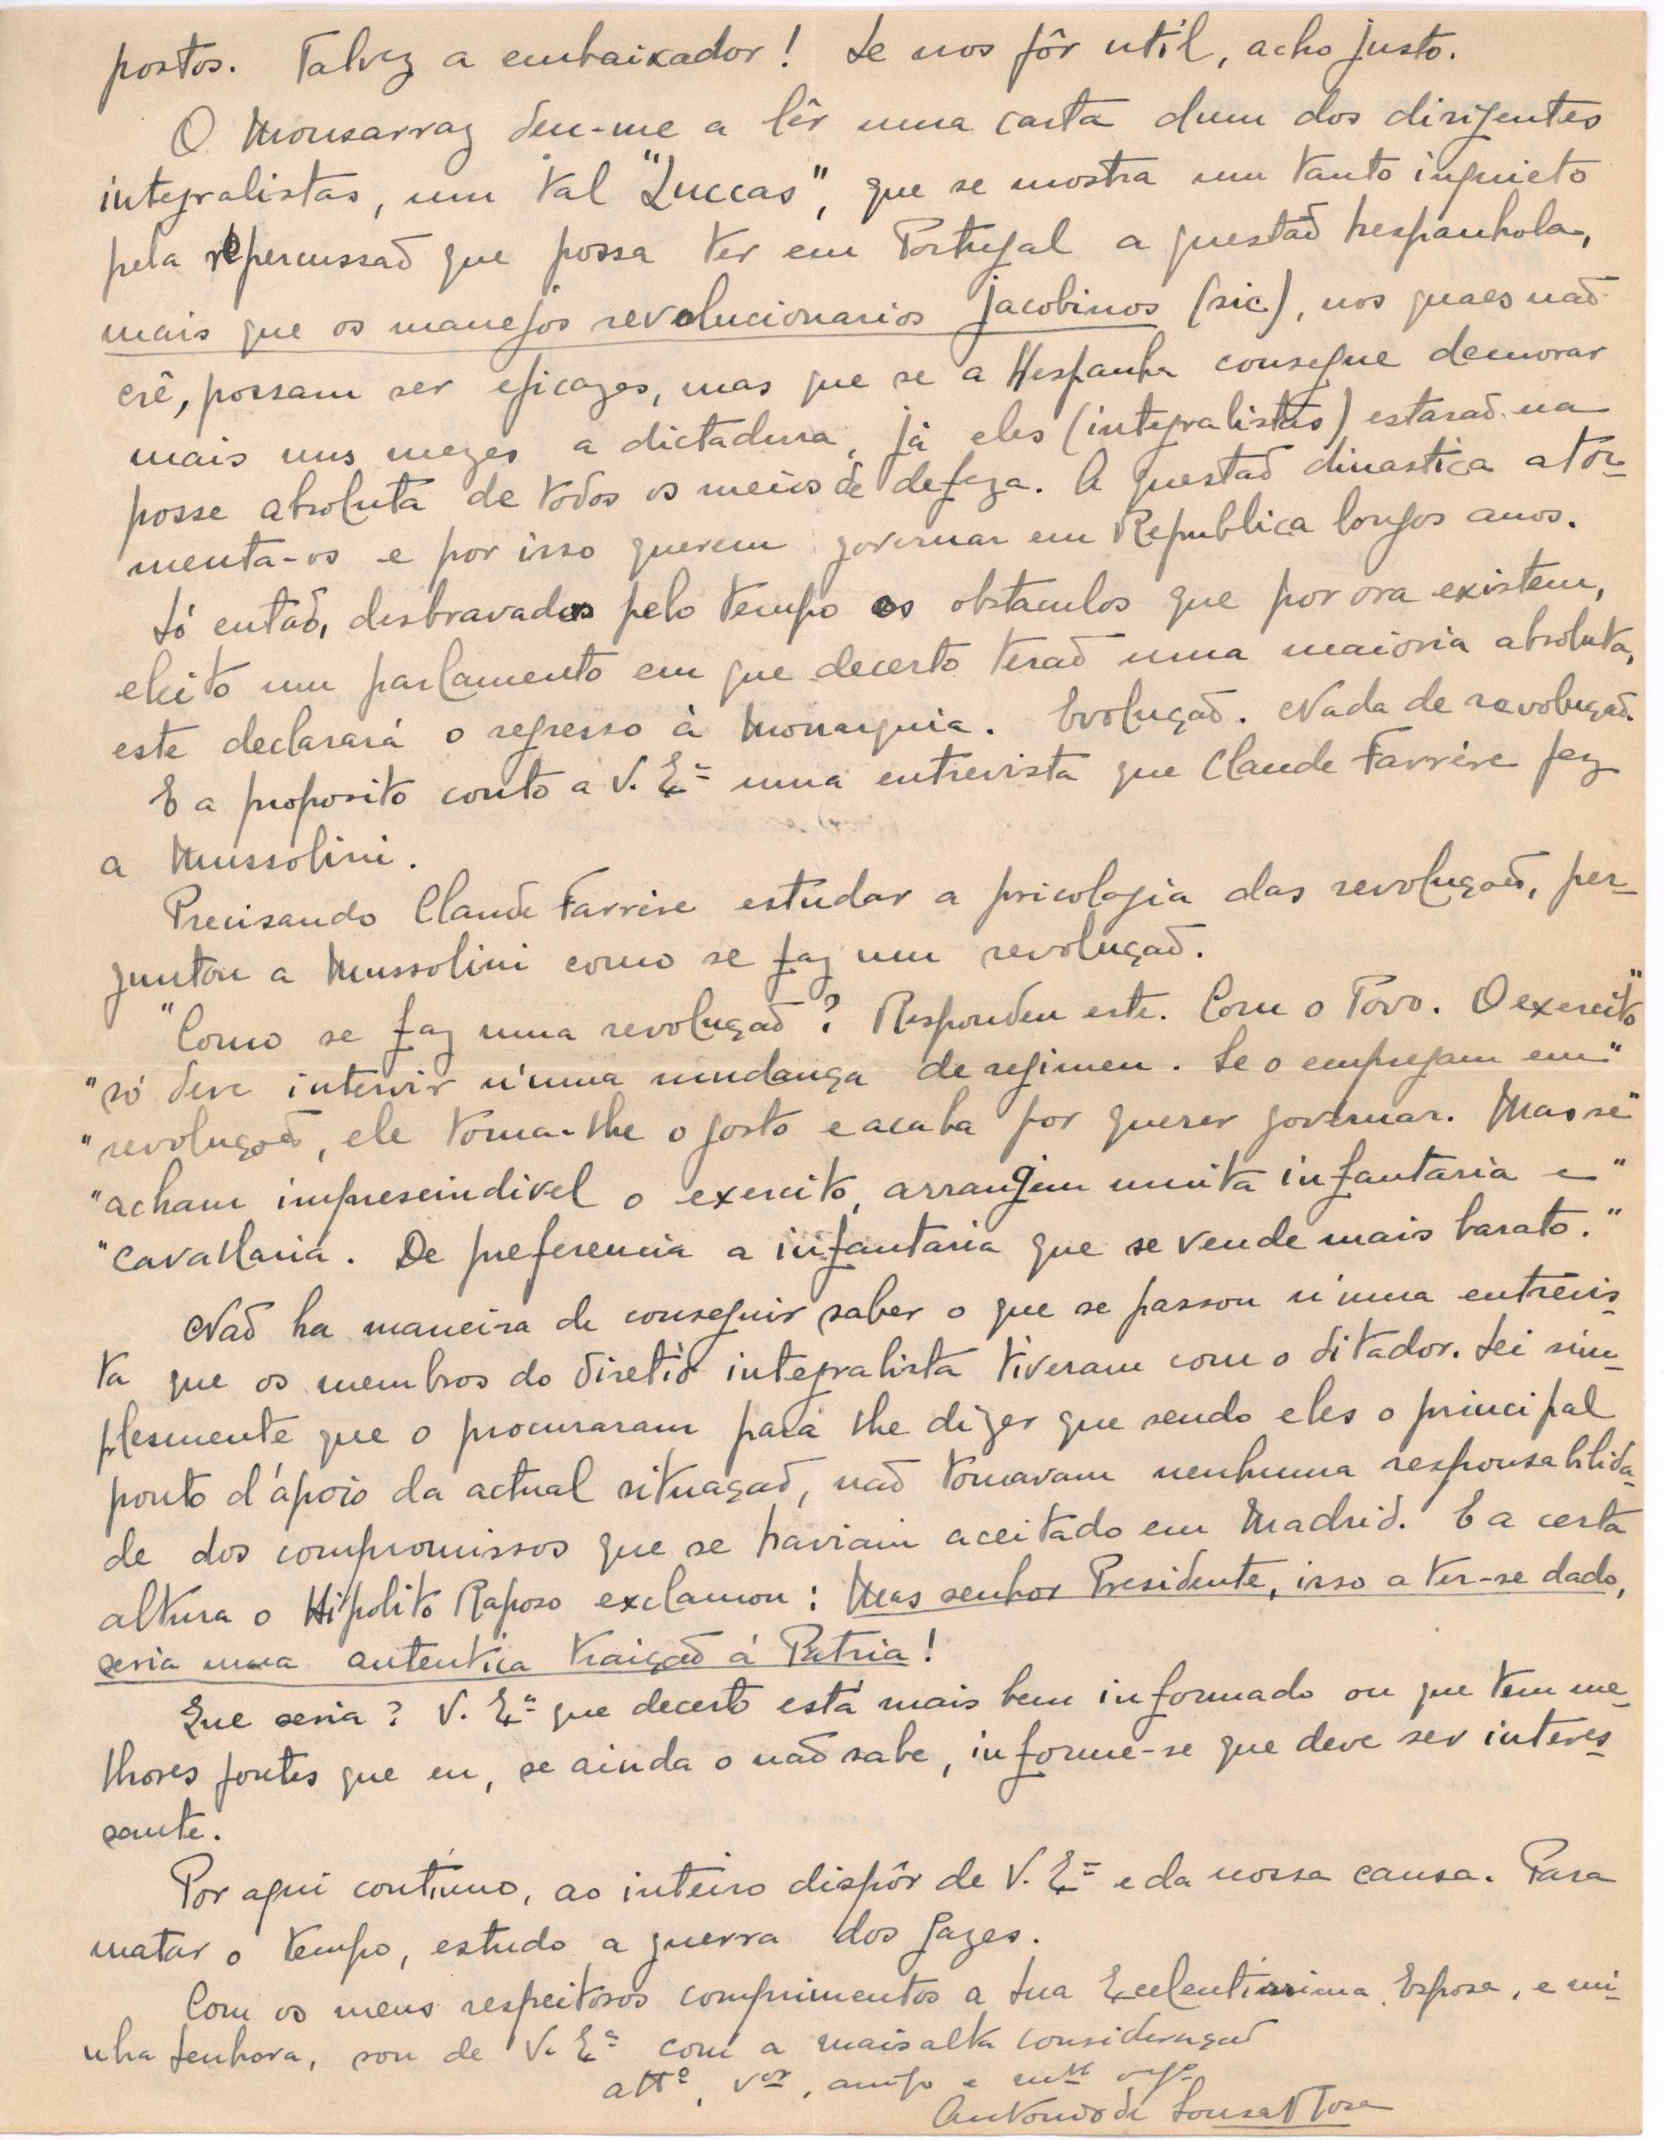 postos. Talvez a embaixador! Se nos fôr util, acho justo.
O Monsarraz deu-me a lêr uma carta dum dos dirigentes
integralistas, um tal "Luccas", que se mostra um tanto inquieto
pela repercussaõ que possa ter em Portugal a questaõ hespanhola,
mais que os manejos revolucionarios jacobinos (sic), nos quaes naõ
crê, possam ser eficazes, mas que se a Hespanha consegue demorar
mais uns mezes a dictadura, já eles (integralistas) estaraõ na
posse absoluta de todos os meios de defeza. A questaõ dinastica ator-
menta-os e por isso querem governar em Republica longos anos.
Só entaõ, desbravados pelo tempo os obstaculos que por ora existem,
eleito um parlamento em que decerto teraõ uma maioria absoluta,
este declarará o regresso à Monarquia. Evoluçaõ. Nada de revoluçaõ.
E a proposito conto a V. Exª uma entrevista que Claude Farrère fez
a Mussolini.
Precisando Claude Farrère estudar a psicologia das revoluçoẽs, per-
guntou a Mussolini como se faz um revoluçaõ.
"Como se faz uma revoluçaõ? Respondeu este. Com o Povo. O exercito"
"só deve intervir n'uma mudança de regimen. Se o empregam em"
"revoluçoẽs, ele toma-lhe o gosto e acaba por querer governar. Mas se"
"acham imprescindivel o exercito, arranjem muita infantaria e"
"cavallaria. De preferencia a infantaria que se vende mais barato."
Naõ ha maneira de conseguir saber o que se passou n'uma entrevis-
ta que os membros do diretió integralista tiveram com o ditador. Sei sim-
plesmente que o procuraram para lhe dizer que sendo eles o principal
ponto d'ápoio da actual situaçaõ, naõ tomavam nenhuma responsabilida-
de dos compromissos que se haviam aceitado em Madrid. E a certa
altura o Hipolito Raposo exclamou: Mas senhor Presidente, isso a ter-se dado,
seria uma autentica traiçaõ á Patria!
Que seria? V. Exª que decerto está mais bem informado ou que tem me-
lhores fontes que eu, se ainda o naõ sabe, informe-se que deve ser interes-
sante.
Por aqui continuo, ao inteiro dispôr de V. Exª e da nossa causa. Para
matar o tempo, estudo a guerra dos gazes.
Com os meus respeitosos comprimentos a Sua Excelentissima Esposa, e mi-
nha Senhora, sou de V. Exª com a mais alta consideraçaõ
attº, vor, amigo e mtº obgº
Antonio de Sousa